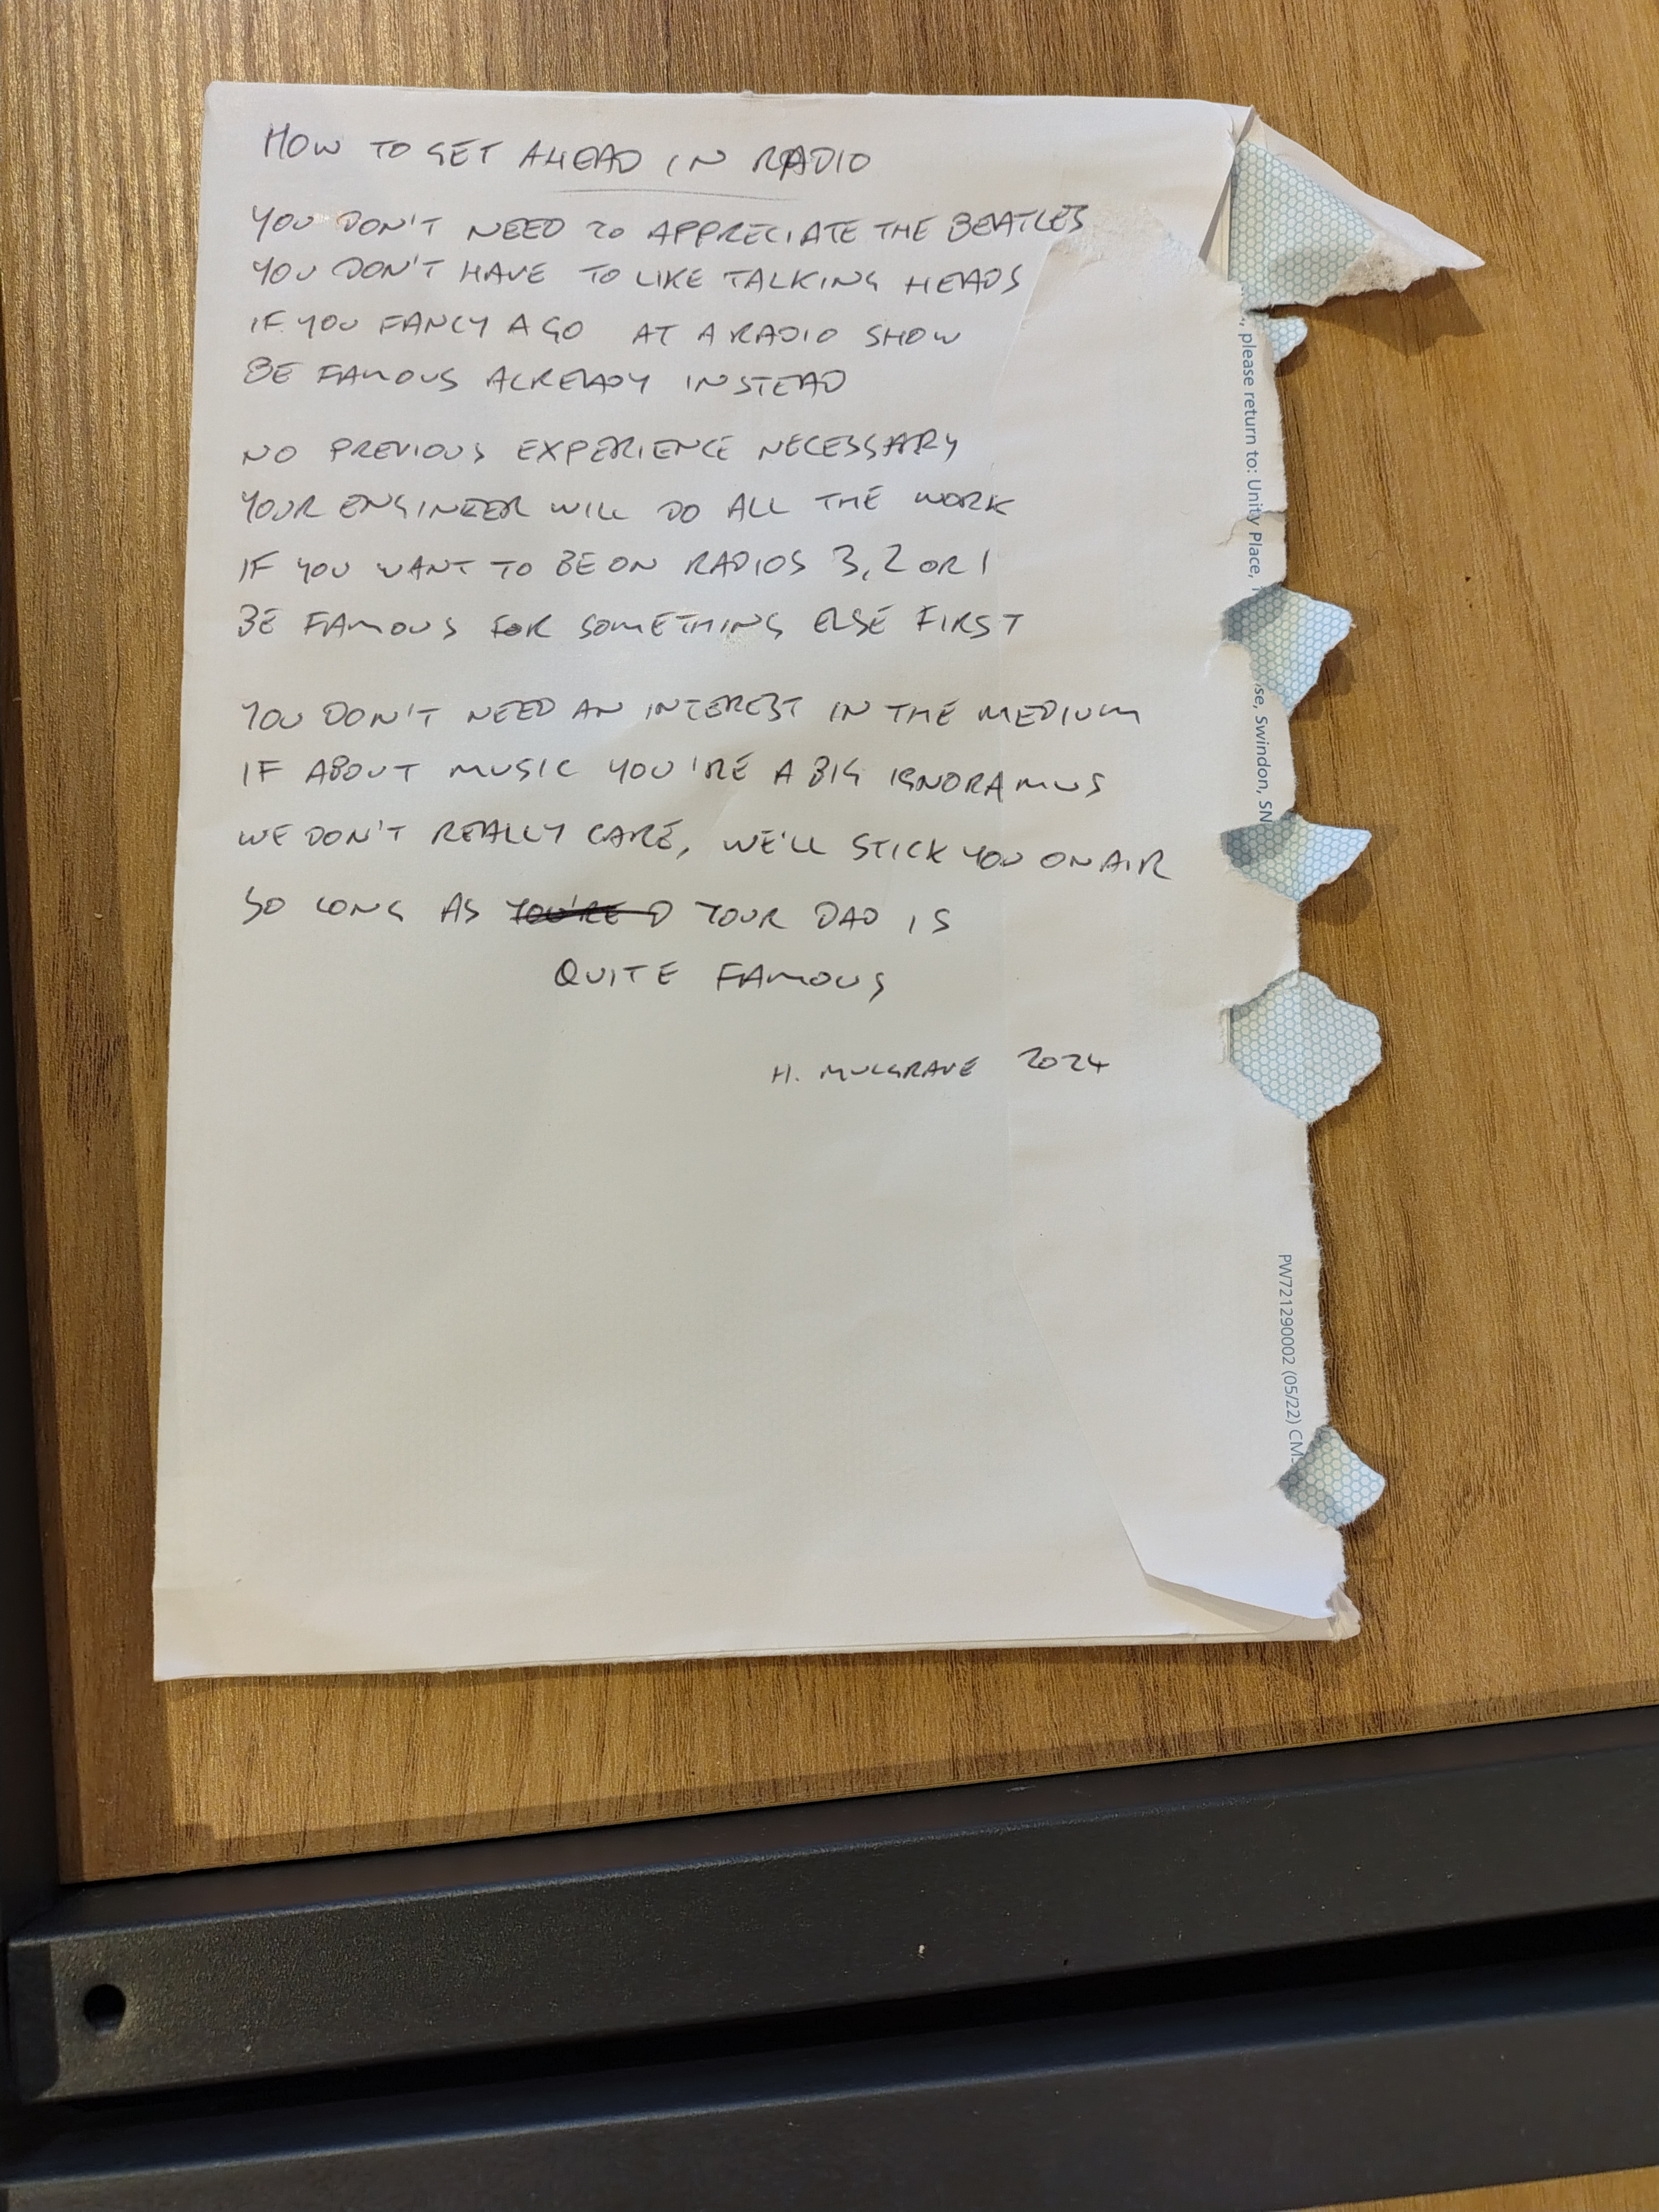 HOW TO GET AHEAD IN RADIO
YOU DON'T NEED TO APPRECIATE THE BEATLES
YOU DON'T HAVE TO LIKE TALKING HEADS
IF YOU FANCY A GO AT A RADIO SHOW
BE FAMOUS ALREADY INSTEAD
NO PREVIOUS EXPERIENCE NECESSARY
YOUR ENGINEER WILL DO ALL THE WORK
IF YOU WANT TO BE ON RADIOS 3, 2 OR 1
BE FAMOUS FOR SOMETHING ELSE FIRST
YOU DON'T NEED AN INTEREST IN THE MEDIUM
IF ABOUT MUSIC YOU'RE A BIG IGNORAMUS
WE DON'T REALLY CARE, WE'LL STICK YOU ON AIR
SO LONG AS YOU'RE D YOUR DAD IS
QUITE FAMOUS
H. MULGRAVE 2024
, please return to: Unity Place,
se, Swindon, SN
PW721290002 (05/22) CM-